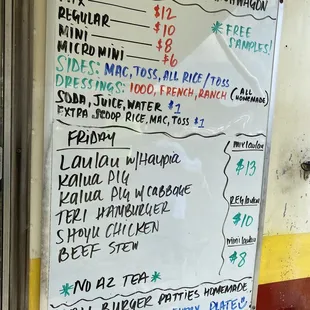 MIX $12
REGULAR $10
MINI $8
MICRO MINI $6
* FREE SAMPLES! *
SIDES: MAC, TOSS, ALL RICE/TOSS
DRESSINGS: 1000, FRENCH, RANCH (ALL HOMEMADE)
SODA, JUICE, WATER $1
EXTRA SCOOP RICE, MAC, TOSS $1
FRIDAY
LAULAU W/HAUPIA
KALUA PIG
KALUA PIG W/CABBAGE
TERI HAMBURGER
SHOYU CHICKEN
BEEF STEW
MIX LAULAU
$13
REG LAULAU
$10
MINI LAULAU
$8
* NO AZ TEA *
BURGER PATTIES HOMEMADE
PLATE